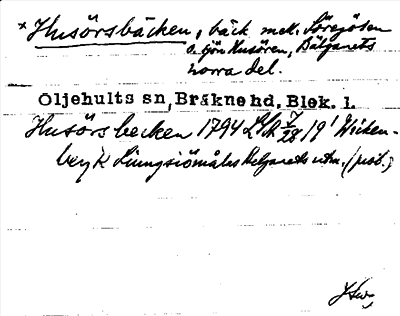 × Husörsbäcken, bäck mek. Söregösen
o. sjön Husören, Bälganets
norra del.
Öljehults sn, Bräkne hd, Blek. l.
Husörs becken 1794 LSA 7/28 19' Wieken-
berg k Liungsiömåla Belganets utm. (prob.)